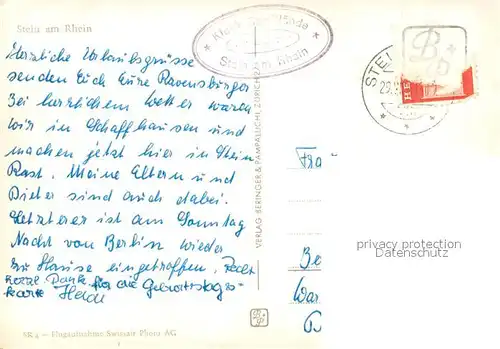 Stein am Rhein
Herzliche Urlaubsgrüsse
senden Euch Eure Ravensburger
Bei herrlichem Wetter waren
wir in Schaffhausen und
machen jetzt hier in Stein
Rast. Meine Eltern und
Dieter sind auch dabei.
Letzterer ist am Sonntag
Nacht von Berlin wieder
zu Hause eingetroffen. Recht
herzl. Dank für die Geburtstags-
karte Heidi
SR 4 – Flugaufnahme Swissair Photo AG
Stein am Rhein
VERLAG BERINGER & PAMPALUCHI, ZÜRICH
STEI
HE
Fra
Be
War
privacy protection
Datenschutz